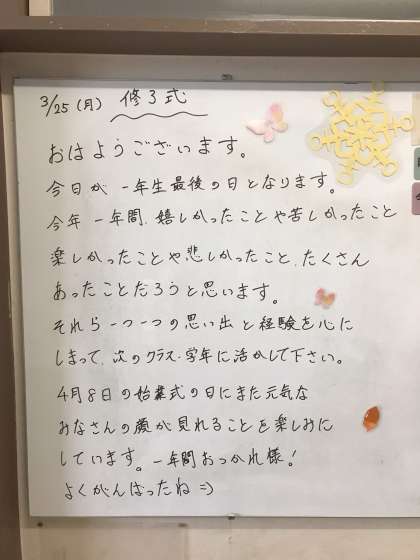 3/25(月) 修了式
おはようございます。
今日が一年生最後の日となります。
今年一年間、嬉しかったことや苦しかったこと
楽しかったことや悲しかったこと、たくさん
あったことだろうと思います。
それら一つ一つの思い出と経験を心に
しまって、次のクラス・学年に活かして下さい。
4月8日の始業式の日にまた元気な
みなさんの顔が見れることを楽しみに
しています。一年間おつかれ様!
よくがんばったね =)